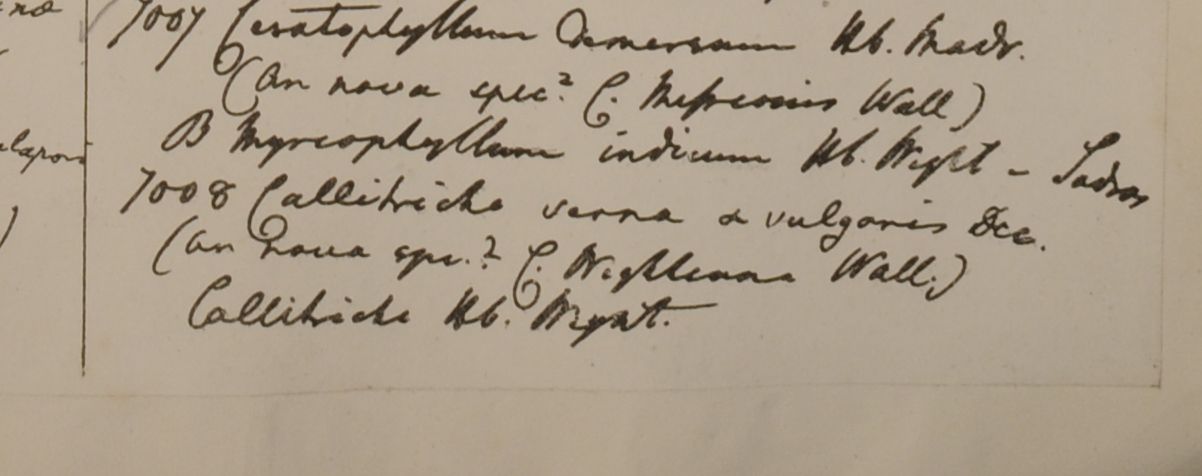 7007 Ceratophyllum demersum Hb. Madr.
(an nova spec? C. Missionis Wall)
B Myreophyllum indicum Hb. Wight - Sadras
7008 Callitriche verna α vulgaris Dec.
(an nova spe.? C. Wightiana Wall.)
Callitriche Hb. Wight.